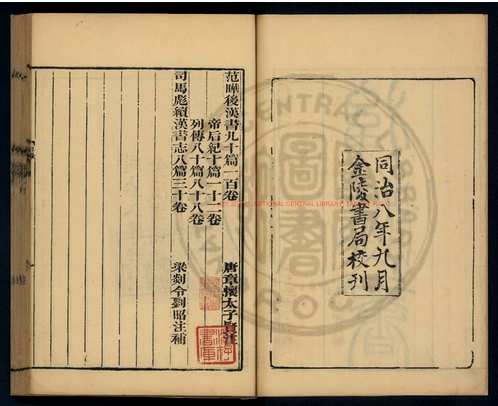 同治八年九月
金陵書局校刊
范曄後漢書九十篇一百卷
唐章懷太子賢注
帝后紀十篇一十二卷
列傳八十篇八十八卷
司馬彪續漢書志八篇三十卷
梁剡令劉昭注補